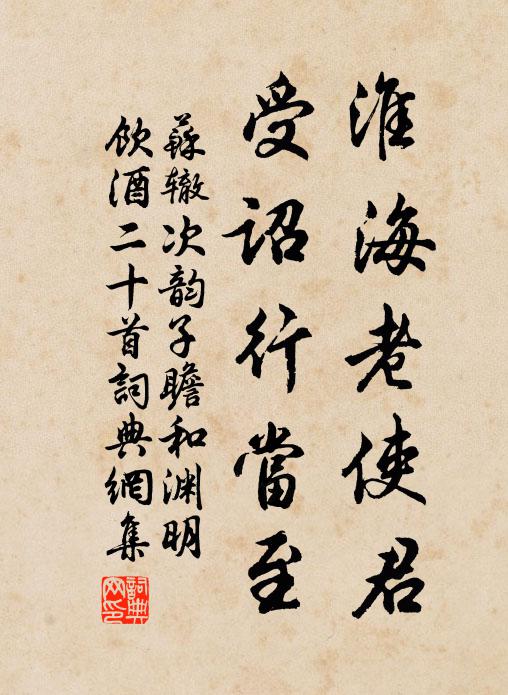 淮海老使君
受詔行當至
蘇辙次韵子瞻和渊明
饮酒二十首詞典網集
詞典网印